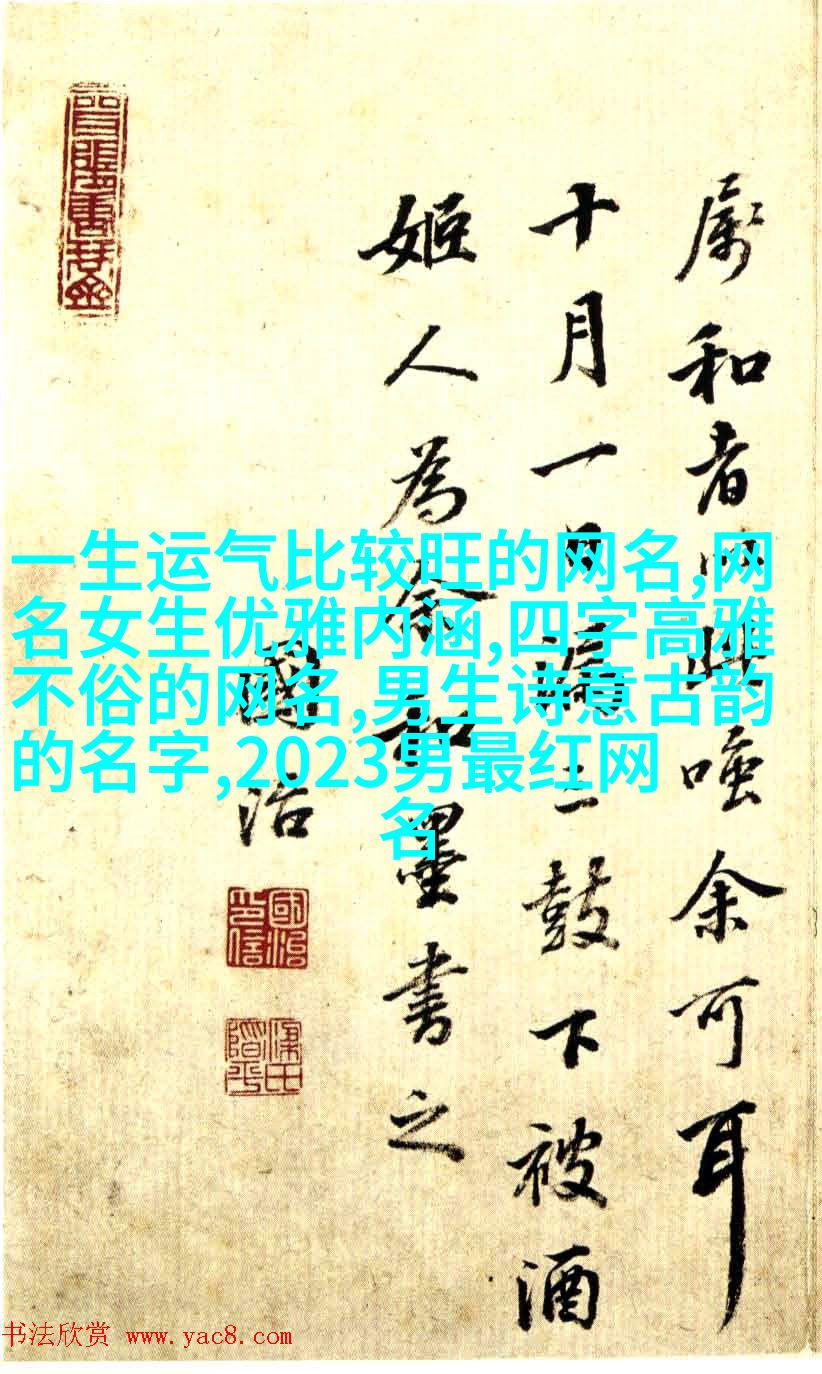 属和者以此嗤余可耳
十月一日漏二鼓下被酒
姬人為余和墨書之
國治
國治印信
一生运气比较旺的网名,网
名女生优雅内涵,四字高雅
不俗的网名,男生诗意古韵
的名字,2023男最红网
名
书法欣赏 www.yac8.com